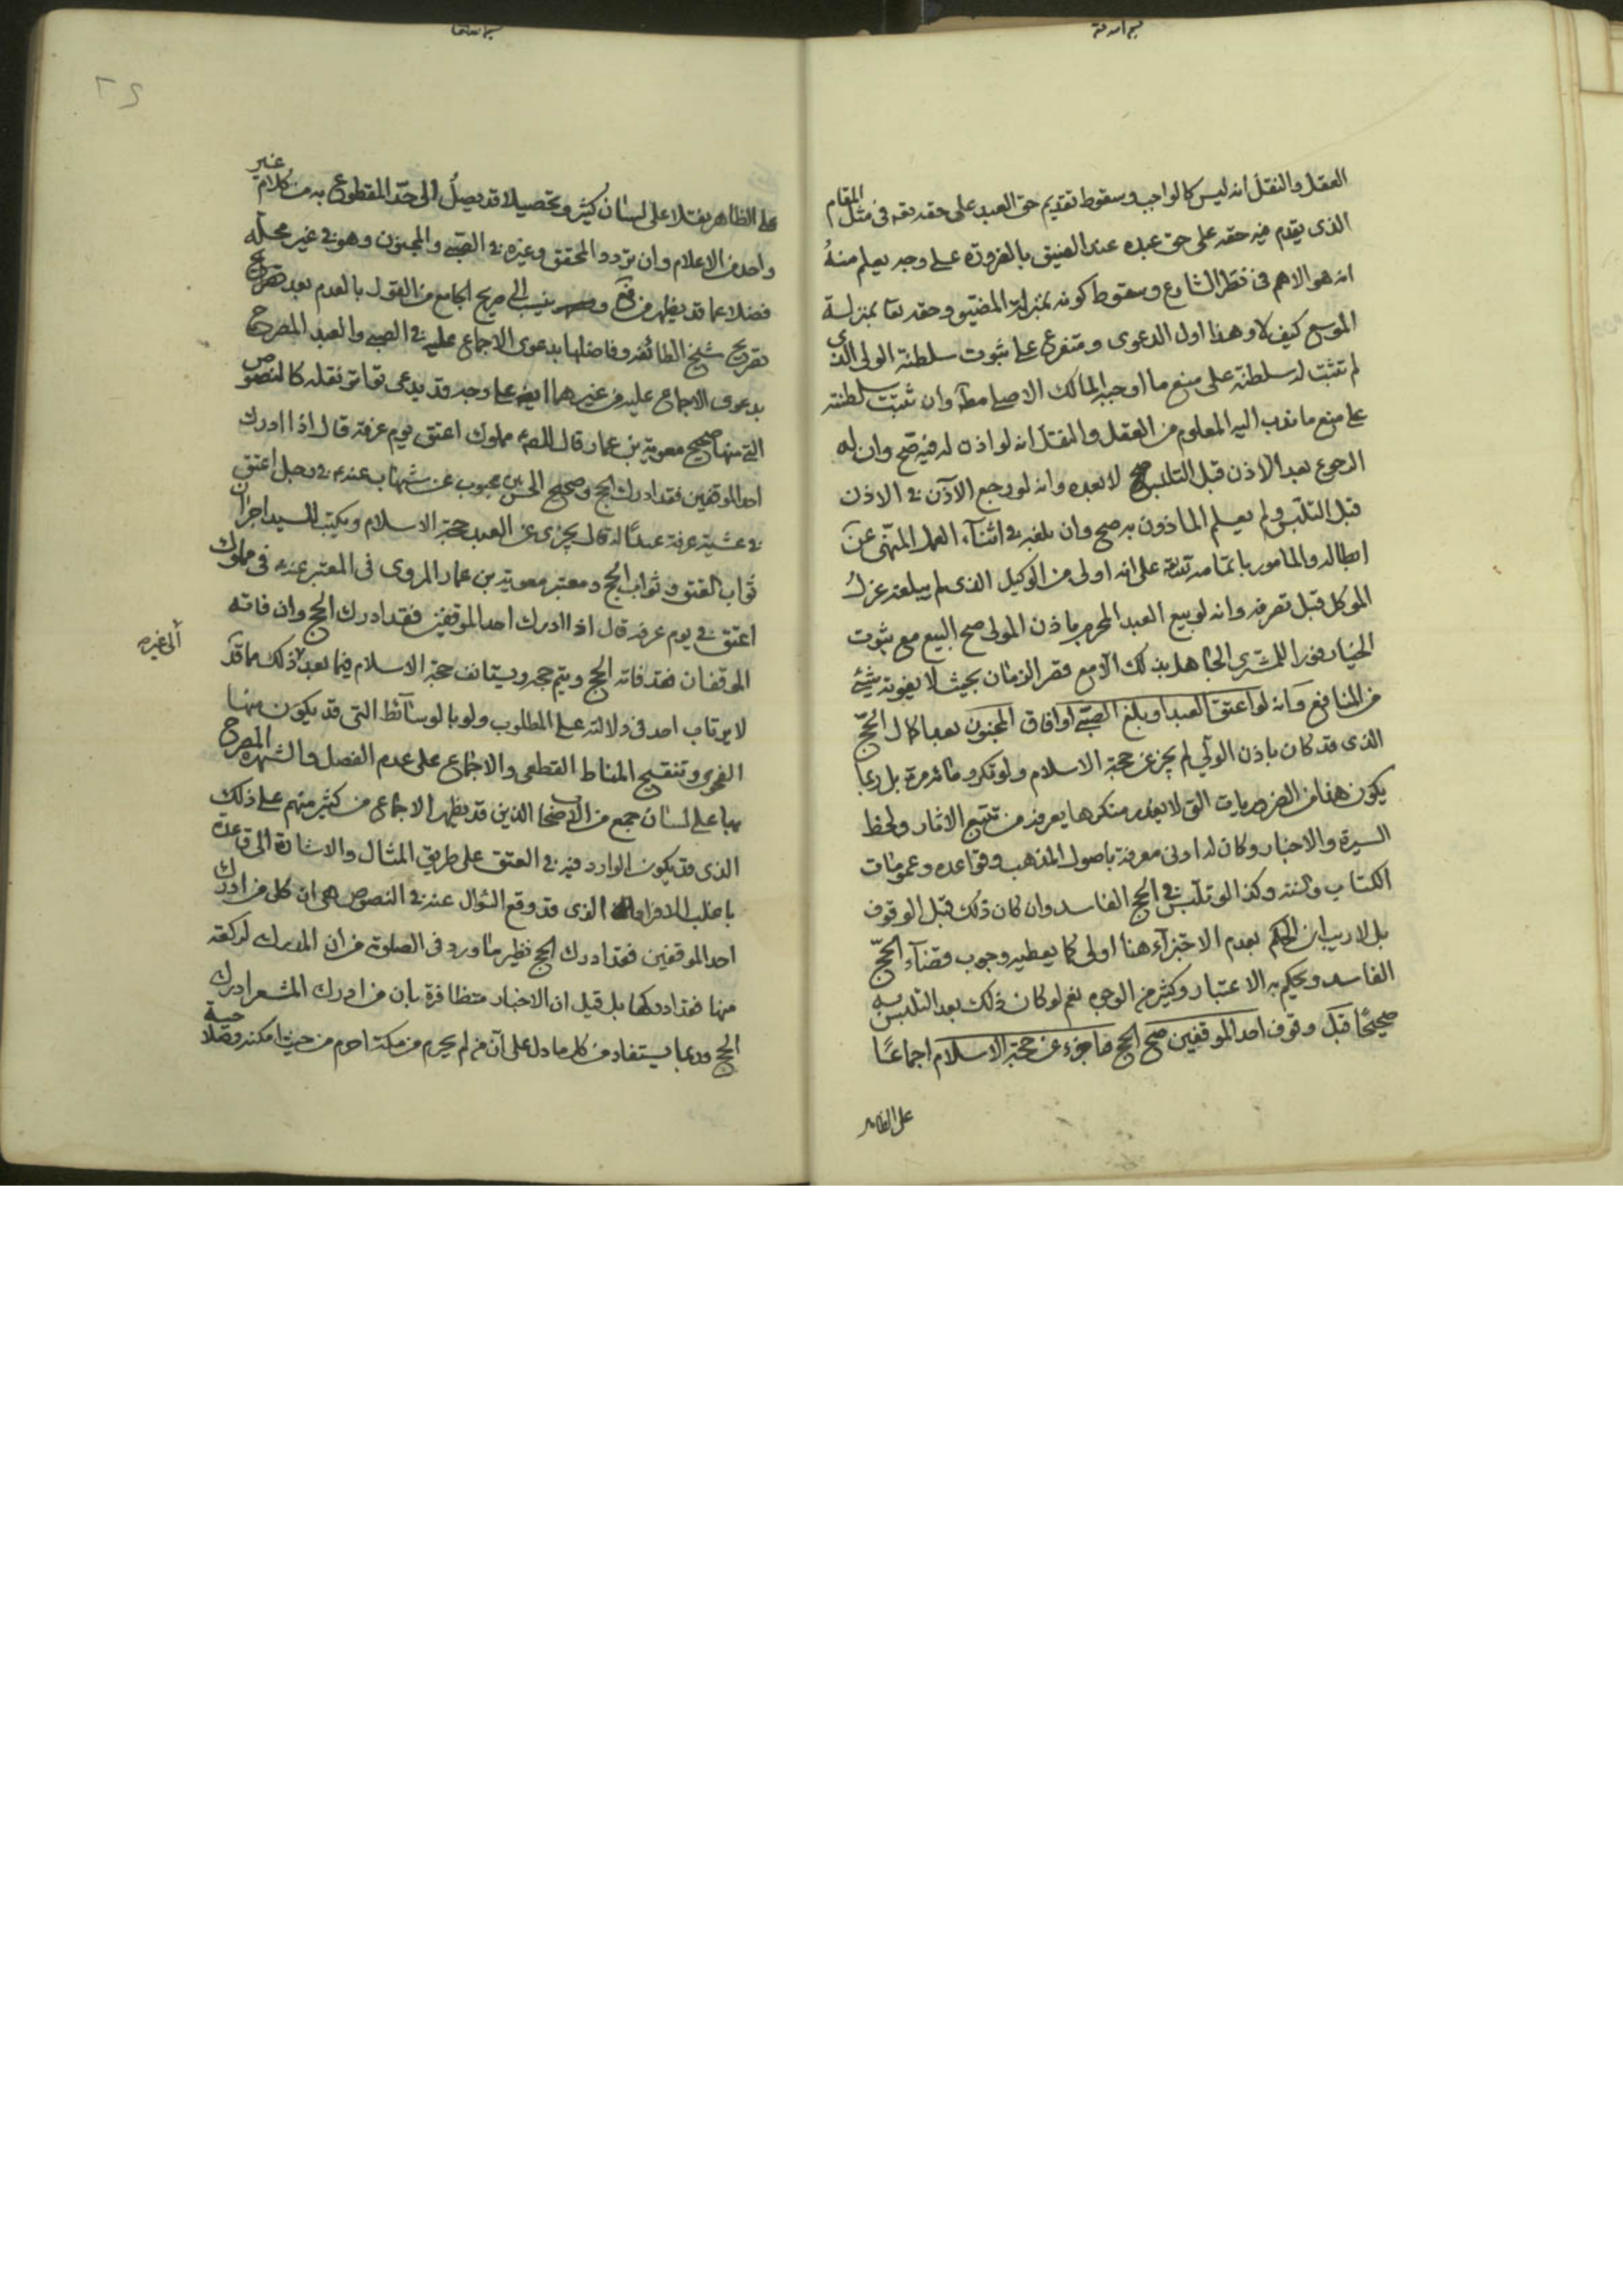 بسم الله تعالى
العقل والنقل انه ليس كالواجب وسقوط تقديم حق العبد على حقه تعه فى مثل المقام
الذى يقدم فيه حقه على حق عبده عند الضيق بالضرورة على وجه يعلم منه
انه هو الاهم فى نظر الشارع وسقوط كونه بمنزلة المضيق وحقه تعا بمنزلة
الموسع كيف لا وهذا اول الدعوى ومتفرع على ثبوت سلطنة الولى الذى
لم تثبت له سلطنة على منع ما اوجبه المالك الاصلى مطه وان ثبتت سلطنته
على منع ما ندب اليه المعلوم من العقل والنقل انه لو اذن له فيه صح وان له
الرجوع بعد الاذن قبل التلبس لا بعده وانه لو رجع الآذن فى الاذن
قبل التلبس ولم يعلم الماذون به صح وان بلغه فى اثناء العمل المنهى عن
ابطاله والمامور باتمامه على انه اولى من الوكيل الذى لم يبلغه عزل
الموكل قبل تصرفه وانه لو بيع العبد المحرم باذن المولى صح البيع مع ثبوت
الخيار فورا للمشترى الجاهل بذلك الا مع قصر الزمان بحيث لا يفوته شئ
من المنافع وانه لو اعتق العبد او بلغ الصبى او افاق المجنون بعد اكمال الحج
الذى قد كان باذن الولى لم يجز عن حجة الاسلام ولو تكرر مائة مرة بل ربما
يكون هذا من الضروريات التى لا يعذر منكرها يعرفه من تتبع الاثار ولحظ
السيرة والاخبار وكان له ادنى معرفة باصول المذهب وقواعده وعمومات
الكتاب والسنه وكذا لو تلبس فى الحج الفاسد وان كان ذلك قبل الوقوف
بل لا ريب ان الحكم بعدم الاجتزاء هنا اولى كما يعطيه وجوب قضاء الحج
الفاسد ويحكم به الاعتبار وكثير من الوجوه نعم لو كان ذلك بعد التلبس به
صحيحا قبل وقوف احد الموقفين صح الحج واجزء عن حجة الاسلام اجماعا
على الظاهر
بسم الله تعا
٢٥
على الظاهر نقلا على لسان كثير وتحصيلا قد يصل الى حد المقطوع به من كلام غير
واحد من الاعلام وان تردد المحقق وغيره فى الصبى والمجنون وهو فى غير محله
فضلا عما قد يظهر من وينسب الى صريح الجامع من القول بالعدم بعد تصريح
تصريح شيخ الطائفة وفاضلها بدعوى الاجماع عليه فى الصبى والعبد المصرح
بدعوى الاجماع عليه من غيرهما ايضا على وجه قد يدعى تواتر نقله كالنصوص
التى منها صحيح معوية بن عمار قال للصه مملوك اعتق يوم عرفة قال اذا ادرك
احد الموقفين فقد ادرك الحج وصحيح الحسن بن محبوب عن شهاب عنه فى رجل اعتق
فى عشية عرفة عبدا له قال يجزى عن العبد حجة الاسلام ويكتب للسيد اجران
ثواب العتق وثواب الحج ومعتبر معوية بن عمار المروى فى المعتبر عنه فى مملوك
اعتق فى يوم عرفة قال اذا ادرك احد الموقفين فقد ادرك الحج وان فاته
الموقفان فقد فاته الحج ويتم حجه ويستانف حجة الاسلام فيما بعد ذلك مما قد
الى غيره
لا يرتاب احد فى دلالته على المطلوب ولو بالوسائط التى قد يكون منها
الفحوى وتنقيح المناط القطعى والاجماع على عدم الفصل والشهره المصرح
بها على لسان جمع من الاصحاب الذين قد يظهر الاجماع من كثير منهم على ذلك
الذى قد يكون الوارد فيه فى العتق على طريق المثال والاشارة الى قاعدة
باغلب الافراد الذى قد وقع السؤال عنه فى النصوص هى ان كل من ادرك
احد الموقفين فقد ادرك الحج نظير ما ورد فى الصلوة من ان المدرك لركعة
منها فقد ادركها بل قيل ان الاخبار متظافرة بان من ادرك المشعر ادرك
الحج وربما يستفاد من كل ما دل على ان من لم يحرم من مكة احرم من حيث امكنه